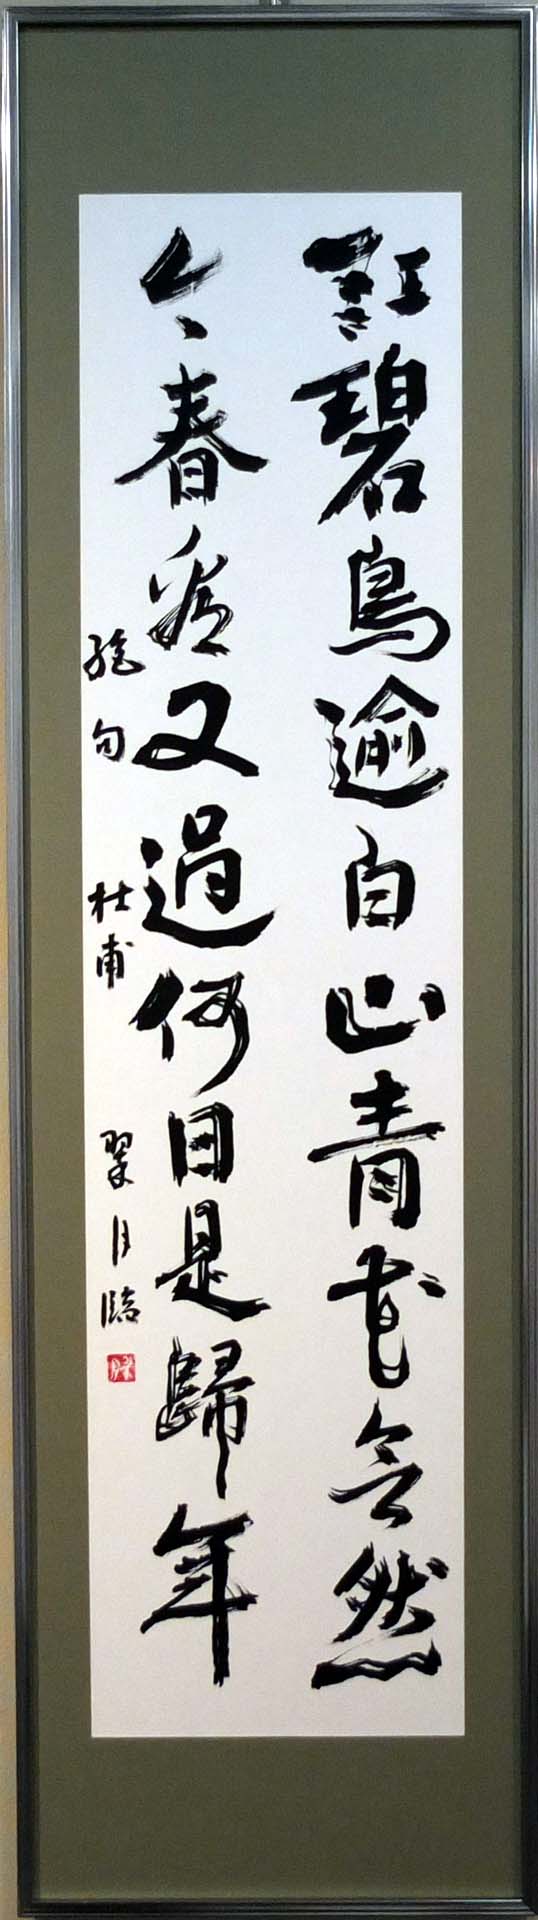 江碧鳥逾白山青花欲然
今春看又過何日是歸年
絶句 杜甫 翠月臨